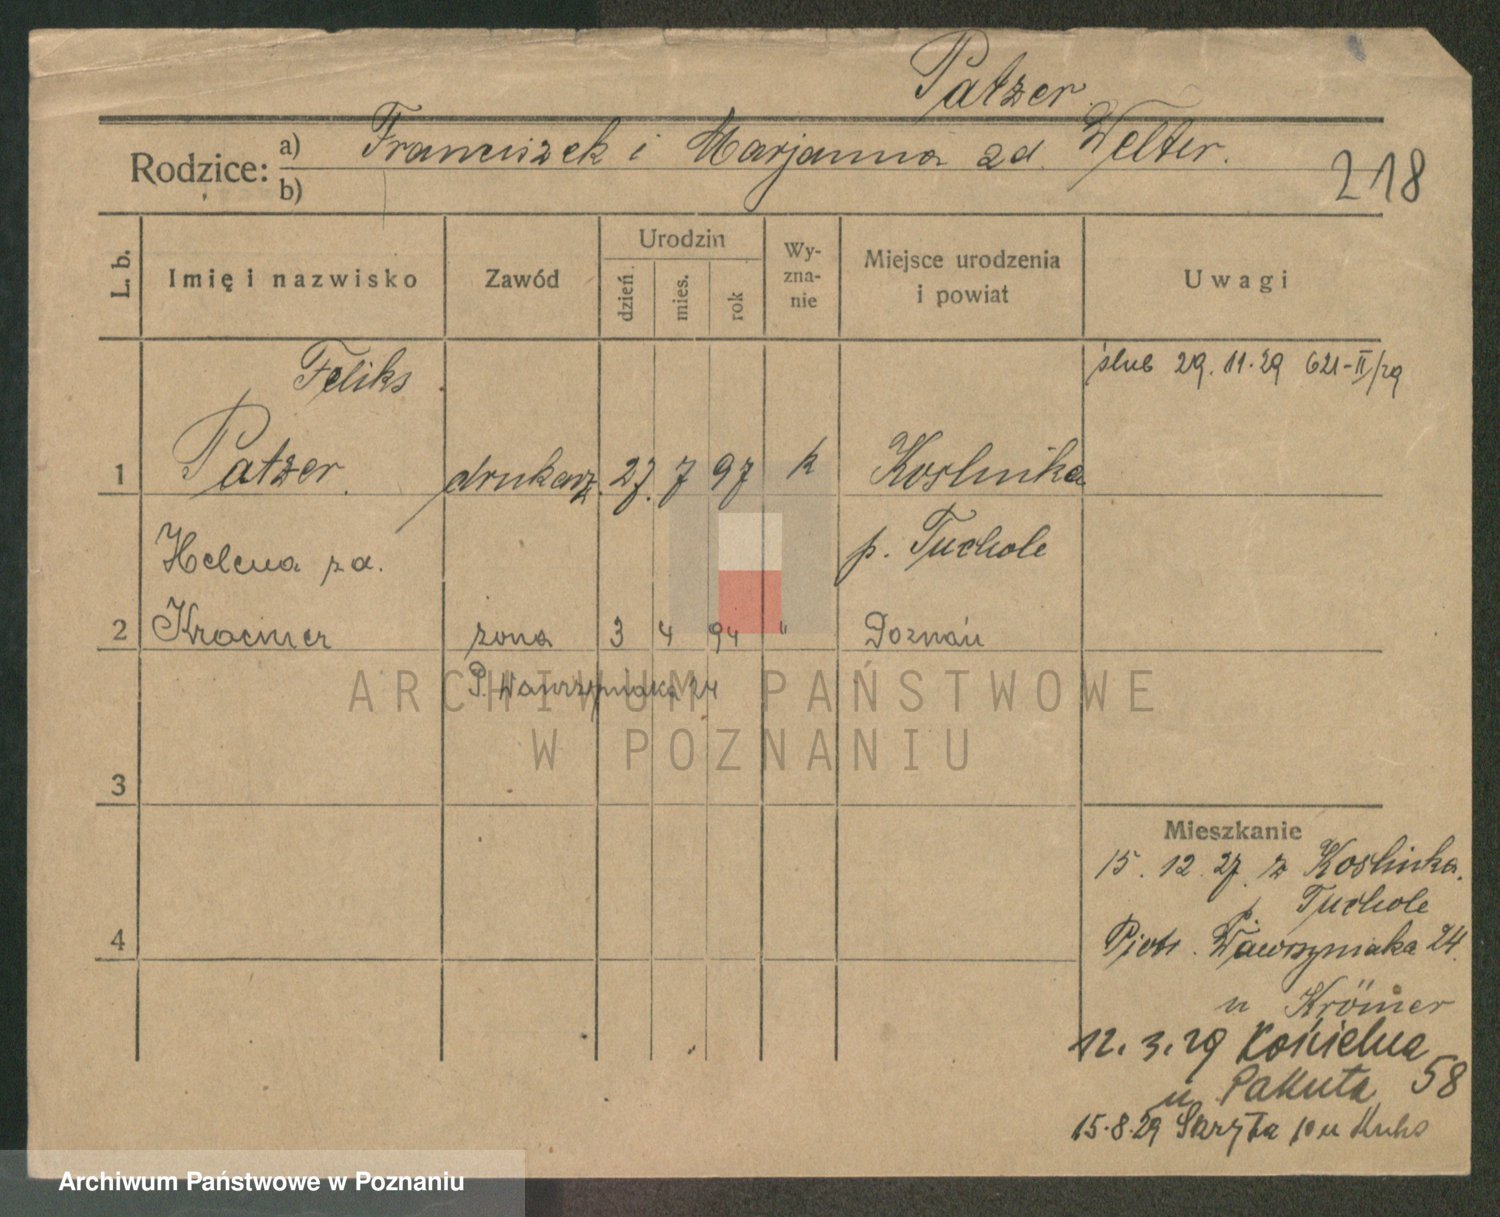 Patzer
Rodzice:
a) Franciszek i Marjanna zd. Welter.
b)
218
L. b.
Imię i nazwisko
Zawód
Urodzin
dzień
mies.
rok
Wy-
zna-
nie
Miejsce urodzenia
i powiat
Uwagi
Feliks
ślub 29.11.29 621-II/29
1 Patzer. drukarz. 27. 7 97 k Koslinka
Helena zd. p. Tuchole
2 Kroemer żona 3 4 94 " Poznań
P. Wawrzyniaka 24
3
4
Mieszkanie
15. 12. 27. z Koslinka.
p. Tuchole
Piotr. Wawrzyniaka 24.
u Krömer
12.3.29 Kościelna
u Pakuta 58
15.8.29 10 u
ARCHIWUM PAŃSTWOWE
W POZNANIU
Archiwum Państwowe w Poznaniu